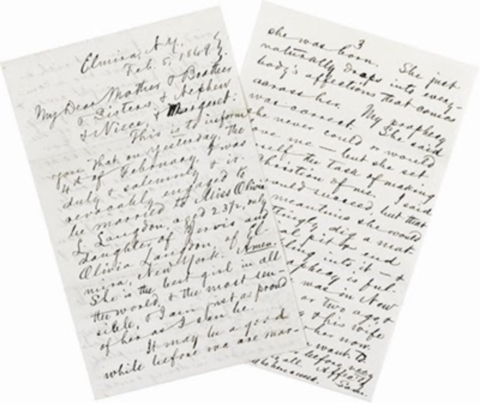 Elmira, N.Y.
Feb. 5, 1869.
My Dear Mother & Brother
& Sisters & Nephew
& Niece, & Margaret:
This is to inform
you that on yesterday, the
4th of February, I was
duly & solemnly & ir-
revocably engaged to
be married to Miss Olivia
L. Langdon, aged 23½, only
daughter of Jervis and
Olivia Langdon, of El-
mira, New York. Amen.
She is the best girl in all
the world, & the most sen-
sible, & I am just as proud
of her as I can be.
It may be a good
while before we are mar-
3
she was born. She just
naturally drops into every-
body's affections that comes
across her. My prophecy
was correct. She said
she never could or would
love me — but she set
herself the task of making
Christian of me. I said
would succeed, but that
meantime she would
tingly dig a mat
al pit & end
ling into it — &
ophecy is ful
man in New
or two ago, &
& his wife
her now.
want to
before very
all. Affecty
Sam.